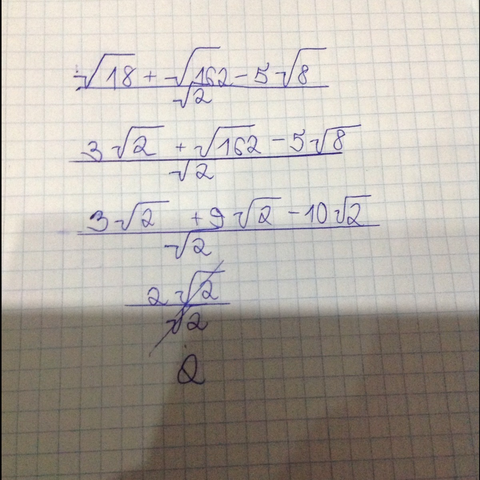 √18 + √162 - 5√8
√2
3√2 + √162 - 5√8
√2
3√2 + 9√2 - 10√2
√2
2√2
√2
2